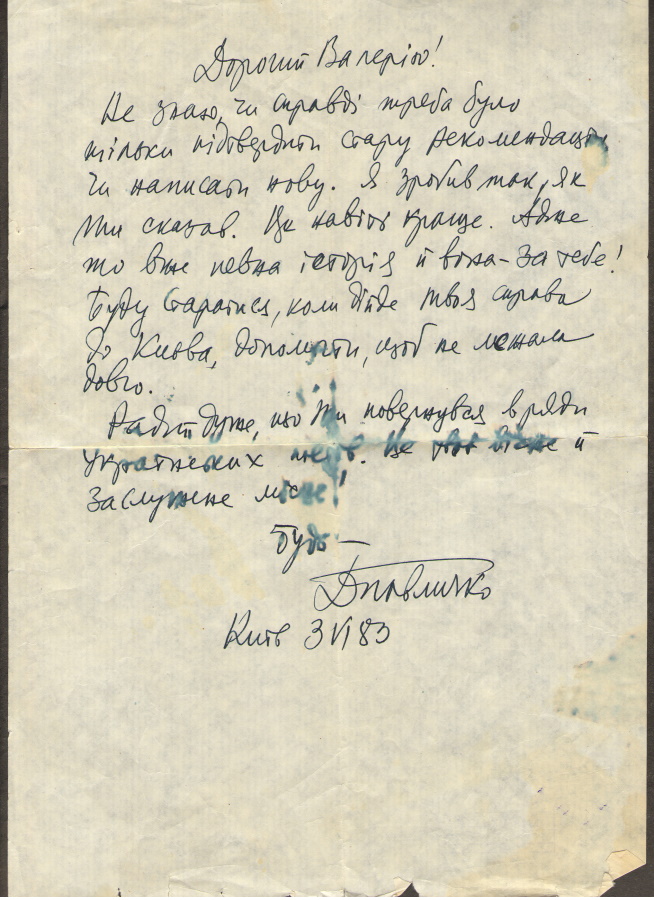 Дорогий Валерію!
Не знаю, чи справді треба було
тільки підтвердити стару рекомендацію
чи написати нову. Я зробив так, як
Ти сказав. Це навіть краще. Адже
то вже певна історія й вона – за тебе!
Буду старатися, коли дійде твоя справа
до Києва, допомогти, щоб не лежала
довго.
Радий дуже, що Ти повернувся в ряди
українських поетів. Це твоє й
заслужене місце!
Будь –
ДПавличко
Київ 3 VI 83